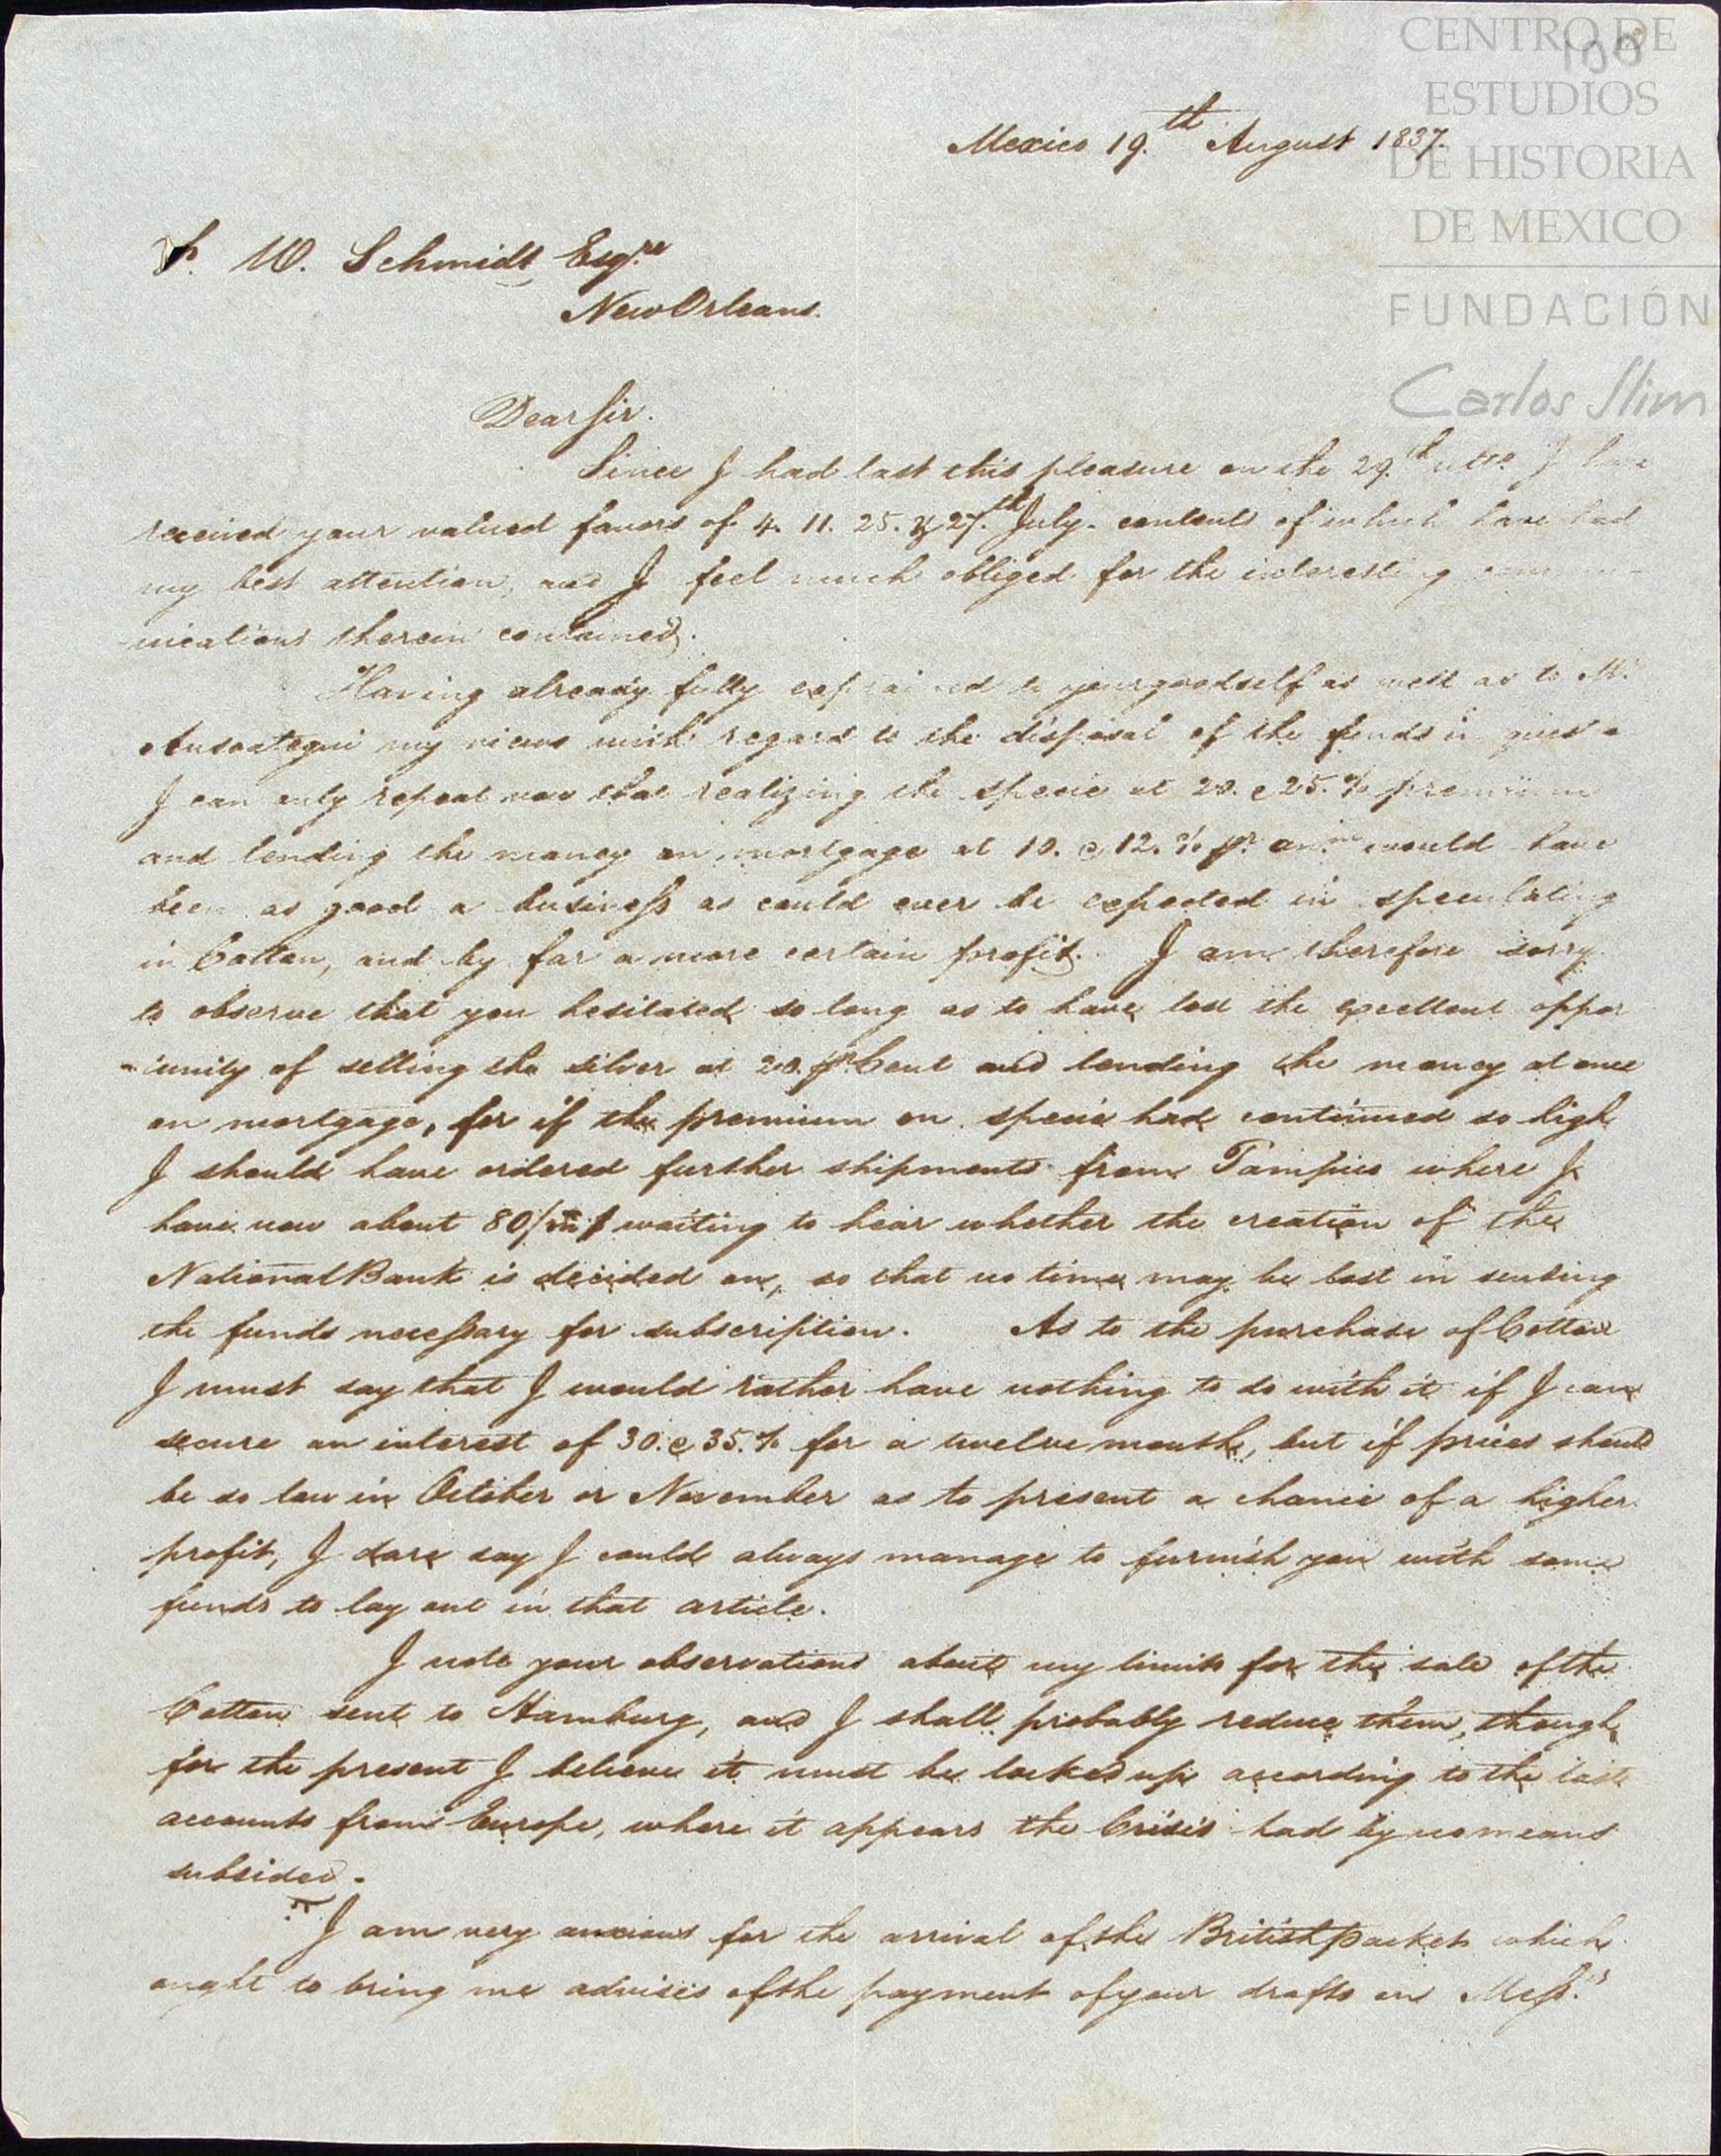 CENTRO DE
ESTUDIOS
DE HISTORIA
DE MEXICO
FUNDACIÓN
Carlos Slim
100
Mexico 19.th August 1837.
W. Schmidt Esqre
New Orleans.
Dear Sir.
Since I had last this pleasure on the 29.th ulto. I have
received your valued favors of 4. 11. 25. & 27.th July. contents of which have had
my best attention, and I feel much obliged for the interesting commu-
-nications therein contained.
Having already fully explained to your goodself as well as to Mr.
Ansoategui my views with regard to the disposal of the funds in
I can only repeat now that realizing the specie at 20. @ 25.% premium
and lending the money on mortgage at 10. @ 12.% pr. anm. would have
been as good a business as could ever be expected in speculating
in Cotton, and by far a more certain profit. I am therefore sorry
to observe that you hesitated so long as to have lost the excellent oppor
-tunity of selling the silver at 20. pr Cent and lending the money at once
on mortgage, for if the premium on specie had continued so high
I should have ordered further shipments from Tampico where I
have now about 80/m $ waiting to hear whether the creation of the
National Bank is decided on, so that no time may be lost in sending
the funds necessary for subscription. As to the purchase of Cotton
I must say that I would rather have nothing to do with it if I can
secure an interest of 30. @ 35.% for a twelve month, but if prices should
be so low in October or November as to present a chance of a higher
profit, I dare say I could always manage to furnish you with some
funds to lay out in that article.
I note your observations about my limits for the sale of the
Cotton sent to Hamburg, and I shall probably reduce them, though
for the present I believe it must be locked up according to the last
accounts from Europe, where it appears the Crisis had by no means
subsided.
I am very anxious for the arrival of the British packet which
ought to bring me advises of the payment of your drafts on Messrs.